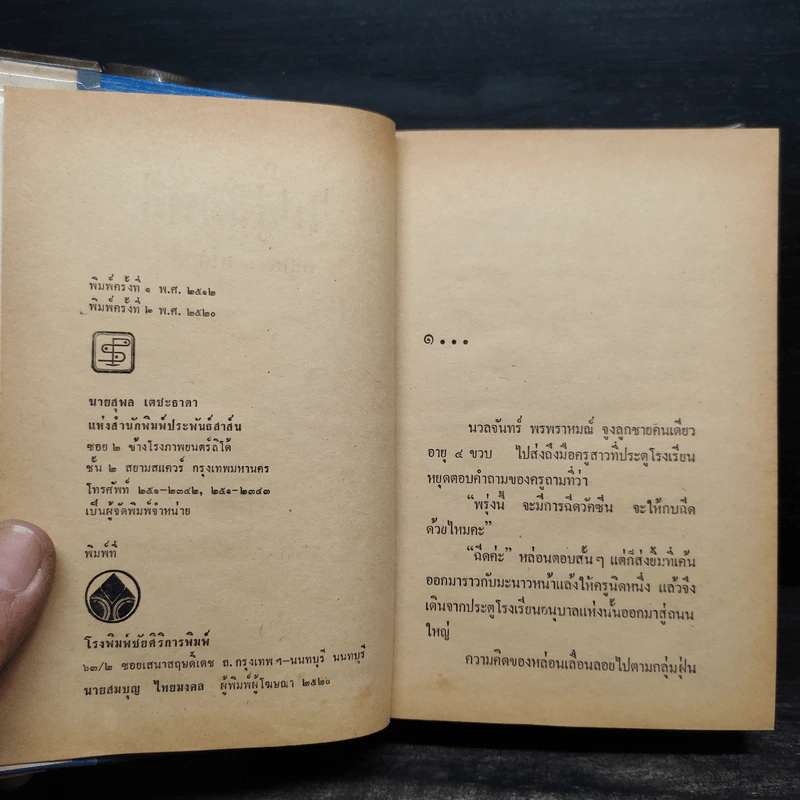 พิมพ์ครั้งที่ ๑ พ.ศ. ๒๕๑๒
พิมพ์ครั้งที่ ๒ พ.ศ. ๒๕๒๐
นายสุพล เตชะธาดา
แห่งสำนักพิมพ์ประพันธ์สาส์น
ซอย ๒ ข้างโรงภาพยนตร์ลิโด้
ชั้น ๒ สยามสแควร์ กรุงเทพมหานคร
โทรศัพท์ ๒๕๑-๒๓๔๒, ๒๕๑-๒๓๔๓
เป็นผู้จัดพิมพ์จำหน่าย
พิมพ์ที่
โรงพิมพ์ชัยศิริการพิมพ์
๖๓/๒ ซอยเสนาสฤษดิ์เดช ถ.กรุงเทพ ฯ-นนทบุรี นนทบุรี
นายสมบุญ ไทยมงคล ผู้พิมพ์ผู้โฆษณา ๒๕๒๐
๑...
นวลจันทร์ พรพราหมณ์ จูงลูกชายคนเดียว
อายุ ๔ ขวบ ไปส่งถึงมือครูสาวที่ประตูโรงเรียน
หยุดตอบคำถามของครูถามที่ว่า
“พรุ่งนี้ จะมีการฉีดวัคซีน จะให้กบฉีด
ด้วยไหมคะ”
“ฉีดค่ะ” หล่อนตอบสั้น ๆ แต่ก็ส่งยิ้มที่เค้น
ออกมาราวกับมะนาวหน้าแล้งให้ครูนิดหนึ่ง แล้วจึง
เดินจากประตูโรงเรียนอนุบาลแห่งนั้นออกมาสู่ถนน
ใหญ่
ความคิดของหล่อนเลื่อนลอยไปตามกลุ่มฝุ่น